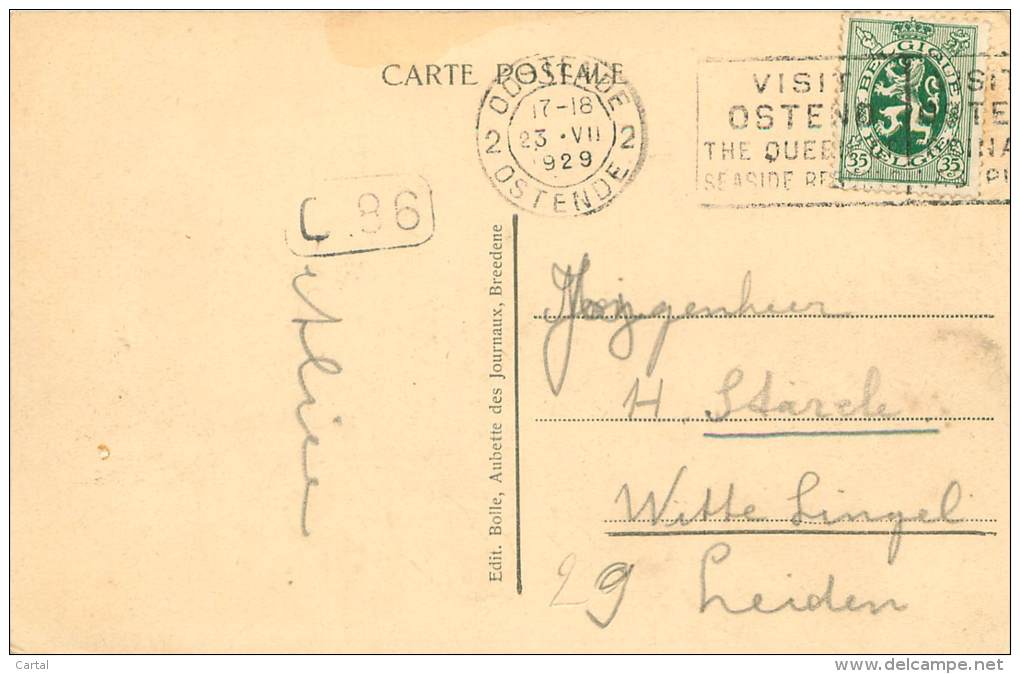 CARTE POSTALE
OOSTENDE
17-18
23 · VII
1929
2 2
OSTENDE
VISIT SIT
OSTEND TE
THE QUEE NA
SEASIDE RE
BELGIQUE
BELGIE
35 c 35 c
.86
Edit. Bolle, Aubette des Journaux, Breedene
H. Starcle
Witte Singel
29 Leiden
Cartal
www.delcampe.net